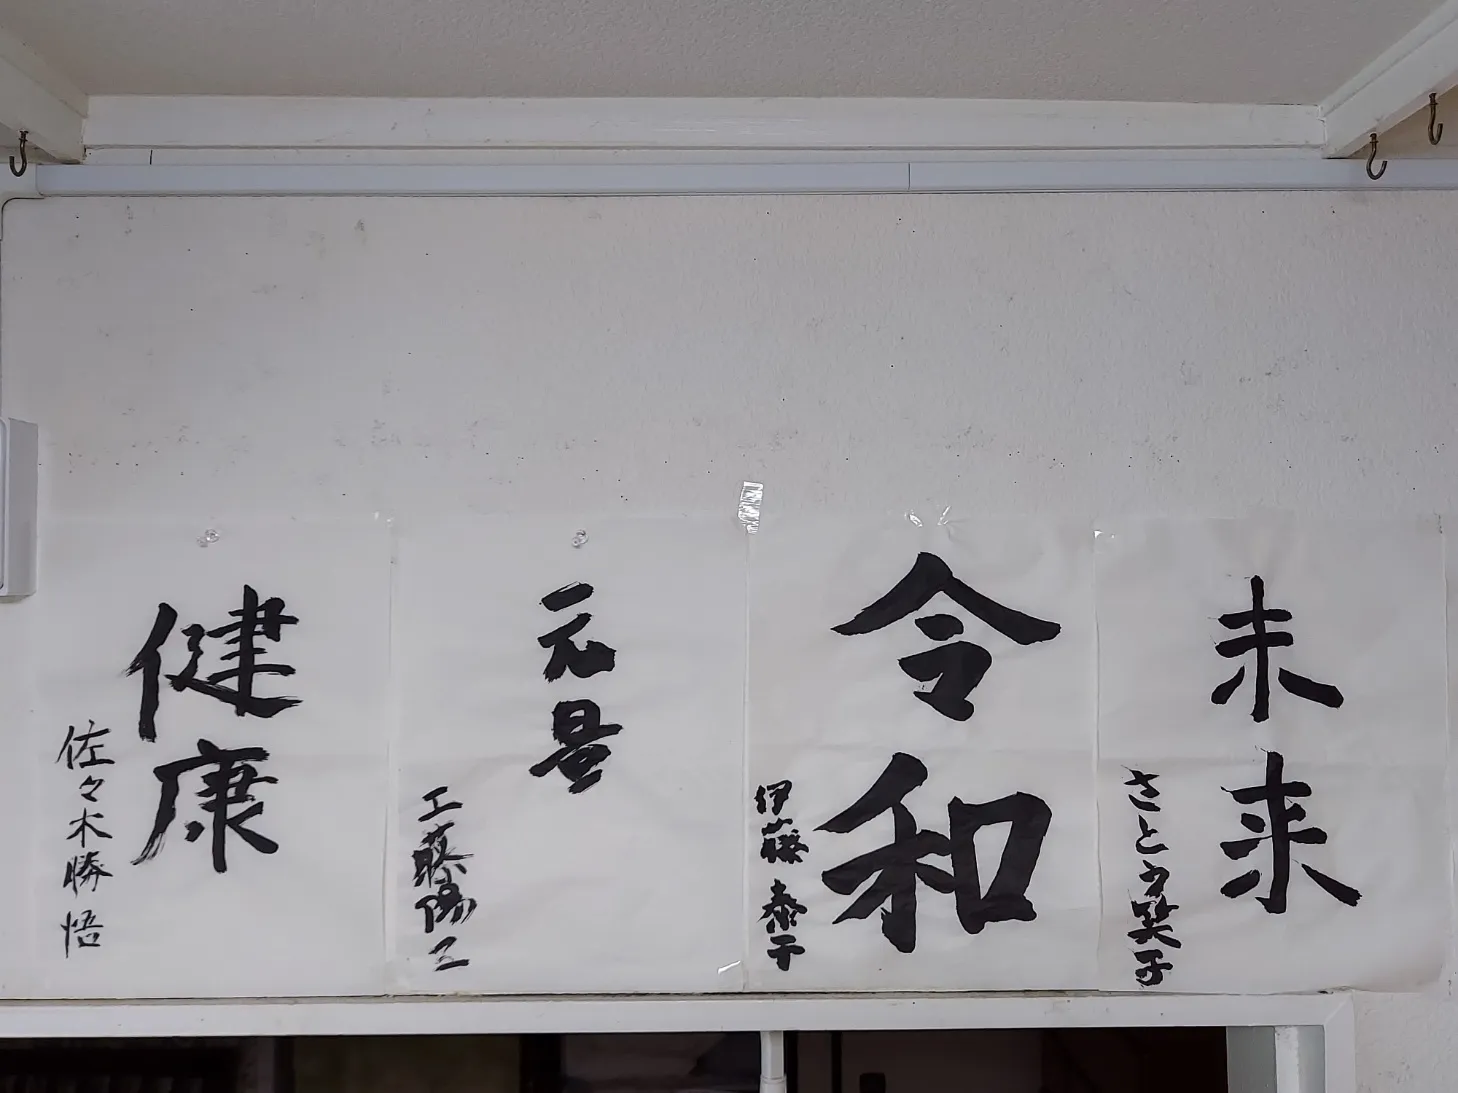 未来
さとう笑子
令和
伊藤泰子
元量
工藤陽三
健康
佐々木勝悟